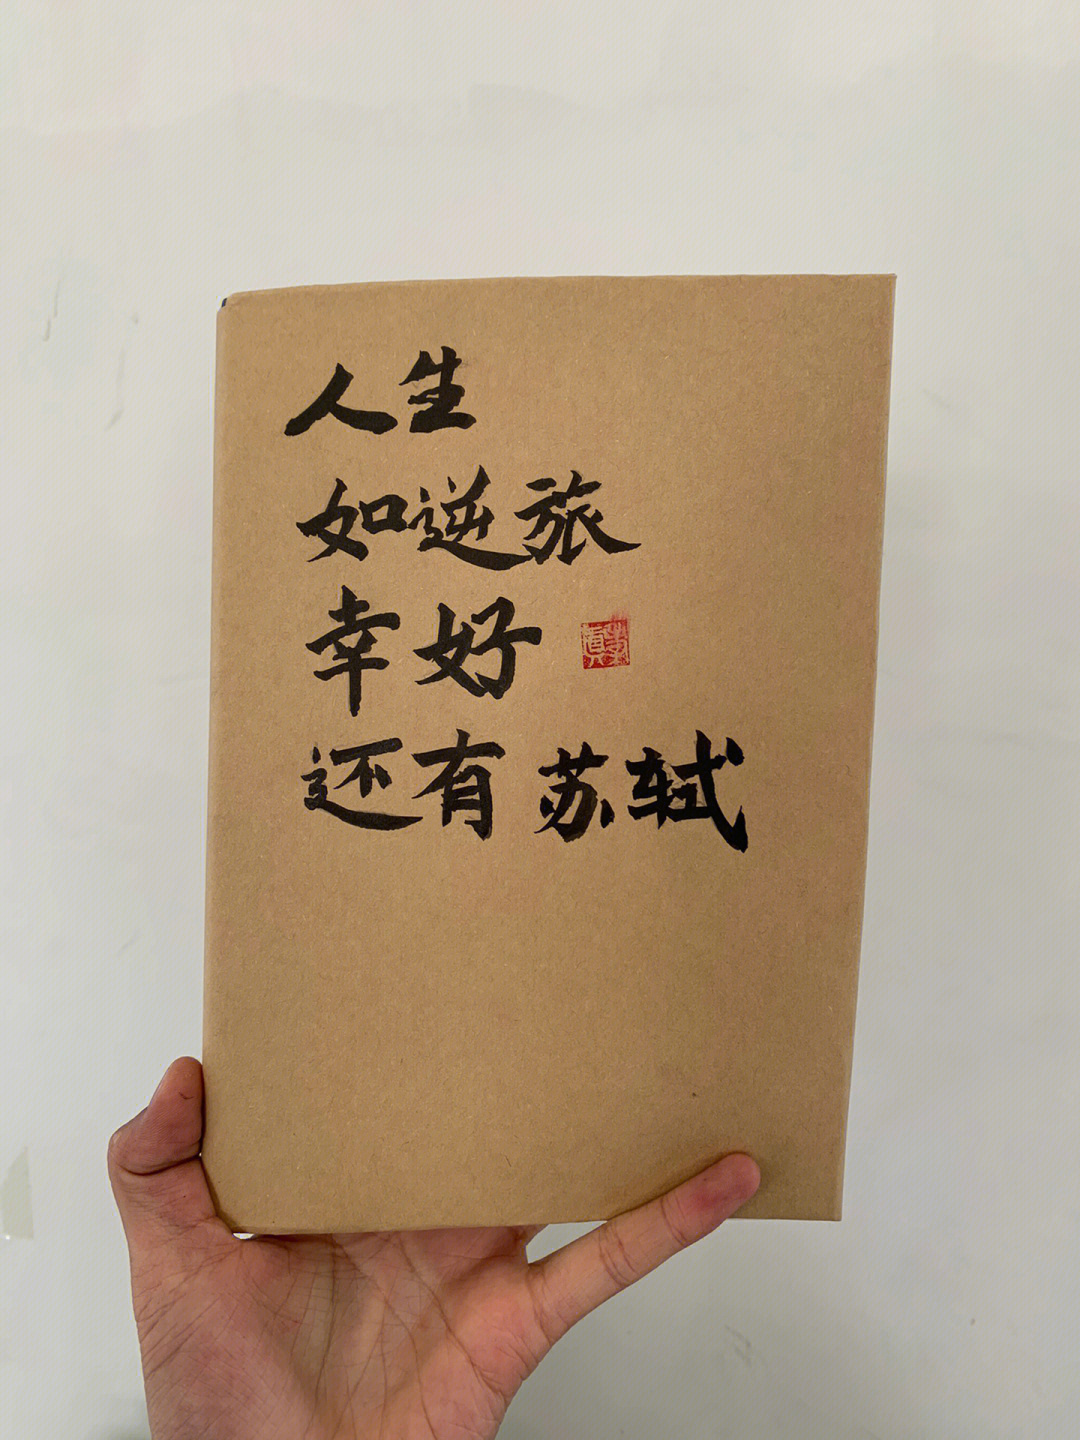 人生
如逆旅
幸好
还有苏轼